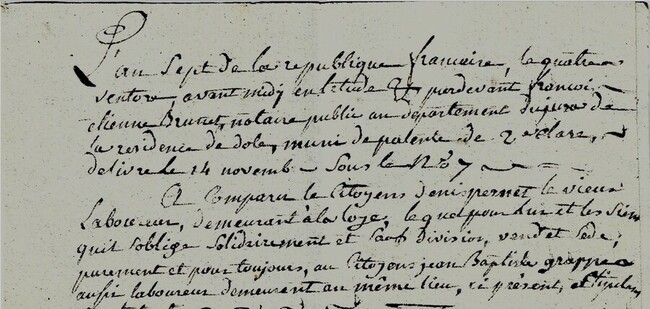 L'an Sept de la republique francaise, le quatre
ventose, avant midy en l'etude et pardevant francoi
etienne Brunet, notaire public au departement du jura de
la residence de dole, muni de patente de 2e classe,
delivre le 14 novemb sous le No 7
A Comparu le Citoyens denis permet le vieux
Laboureur, demeurant à la loge, le quel pour lui et les Siens
quil soblige Solidairement et Sans division, vend et Cede,
purement et pour toujours, au Citoyens jean Baptiste grappe
aussi laboureur demeurant au même lieu, ci présent, et Stipulan